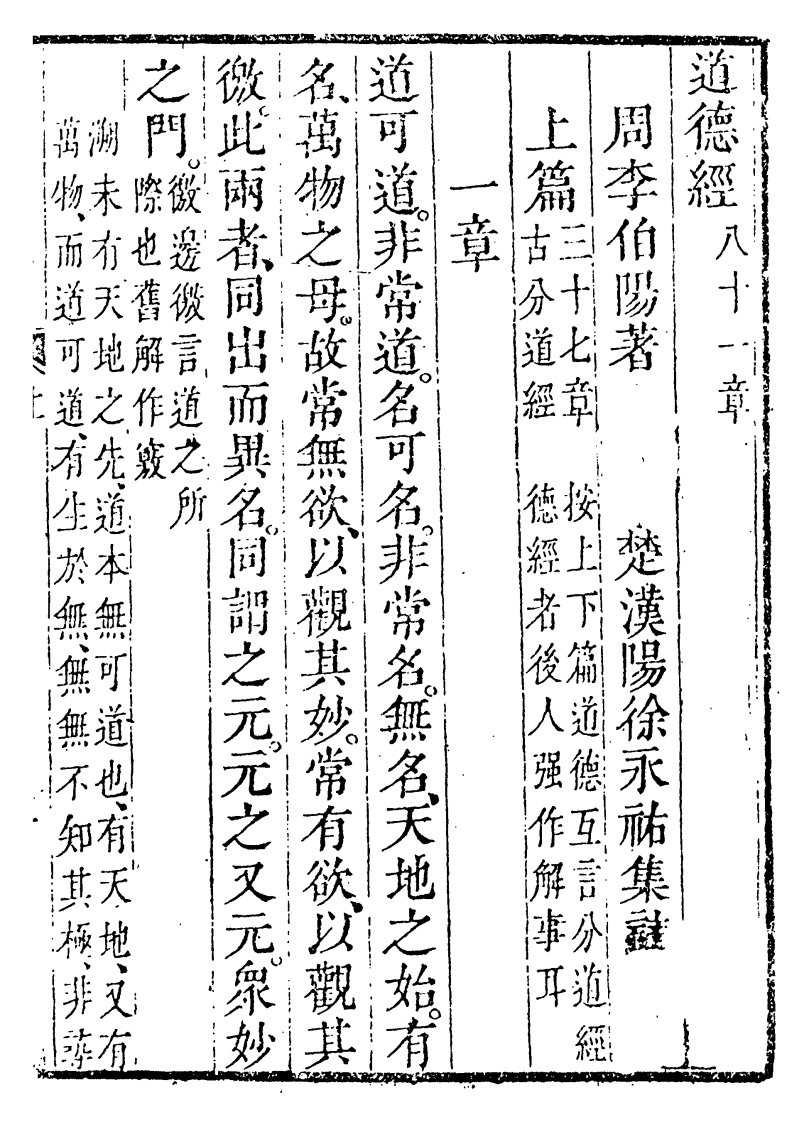 道德經 八十一章
周李伯陽著 楚漢陽徐永祐集註
上篇 三十七章 按上下篇道德互言分道經
古分道經 德經者後人强作解事耳
一章
道可道。非常道。名可名。非常名。無名、天地之始。有
名、萬物之母。故常無欲、以觀其妙。常有欲、以觀其
徼。此兩者、同出而異名。同謂之元。元之又元。衆妙
之門。徼邊徼言道之所
際也舊解作竅
溯未有天地之先、道本無可道也、有天地、又有
萬物、而道可道、有生於無、無無不知其極、非